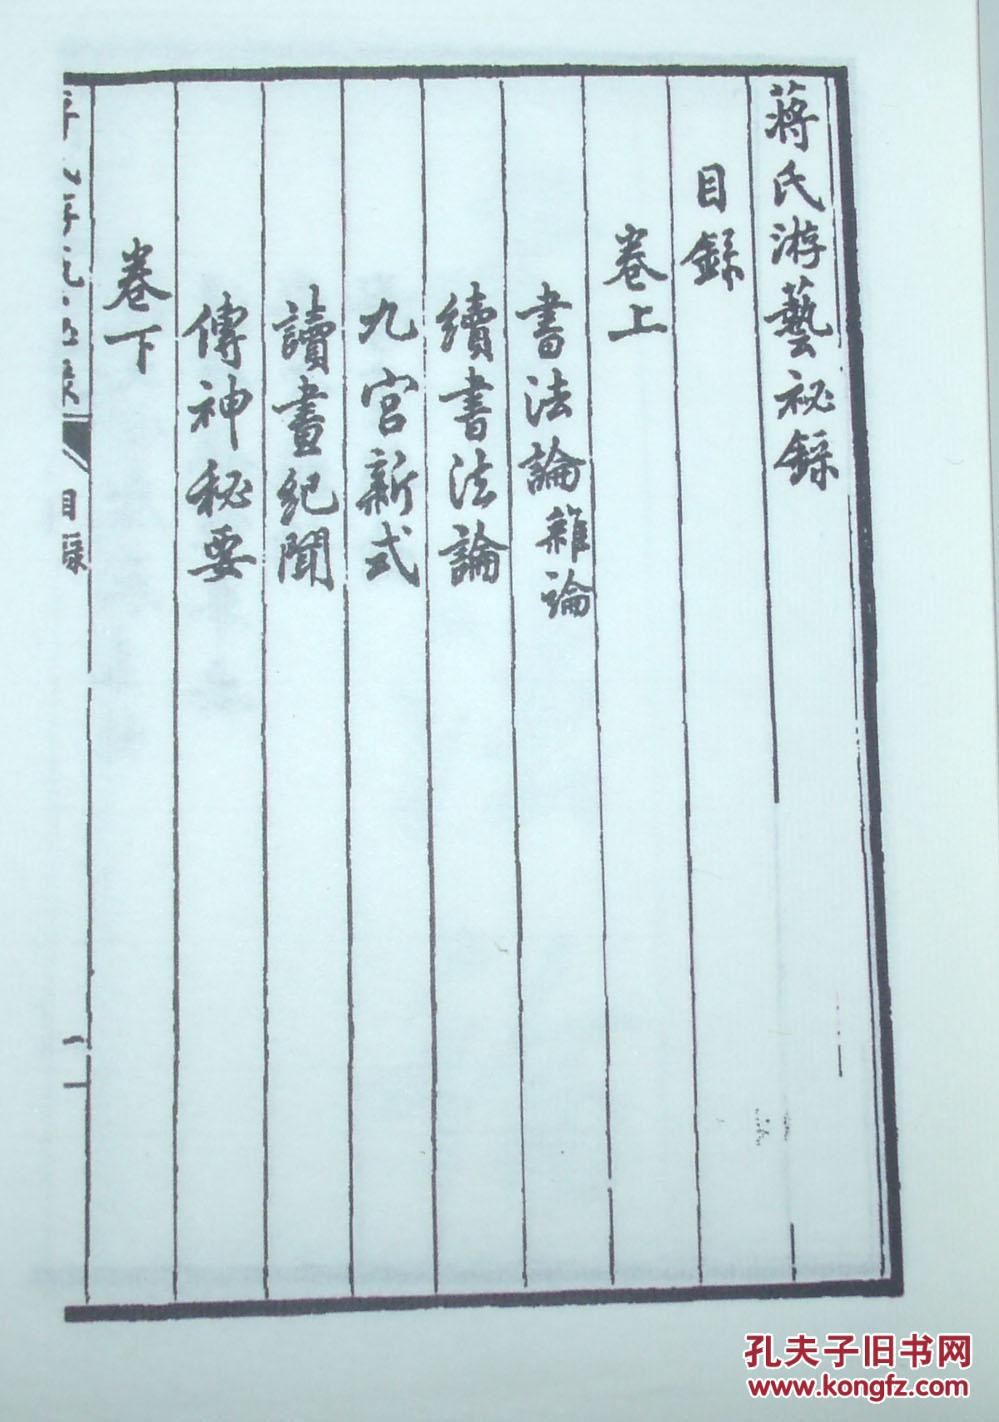 蔣氏游藝祕錄
目錄
卷上
書法論雜論
續書法論
九宮新式
讀畫紀聞
傳神秘要
卷下
目錄
一
孔夫子旧书网
www.kongfz.com